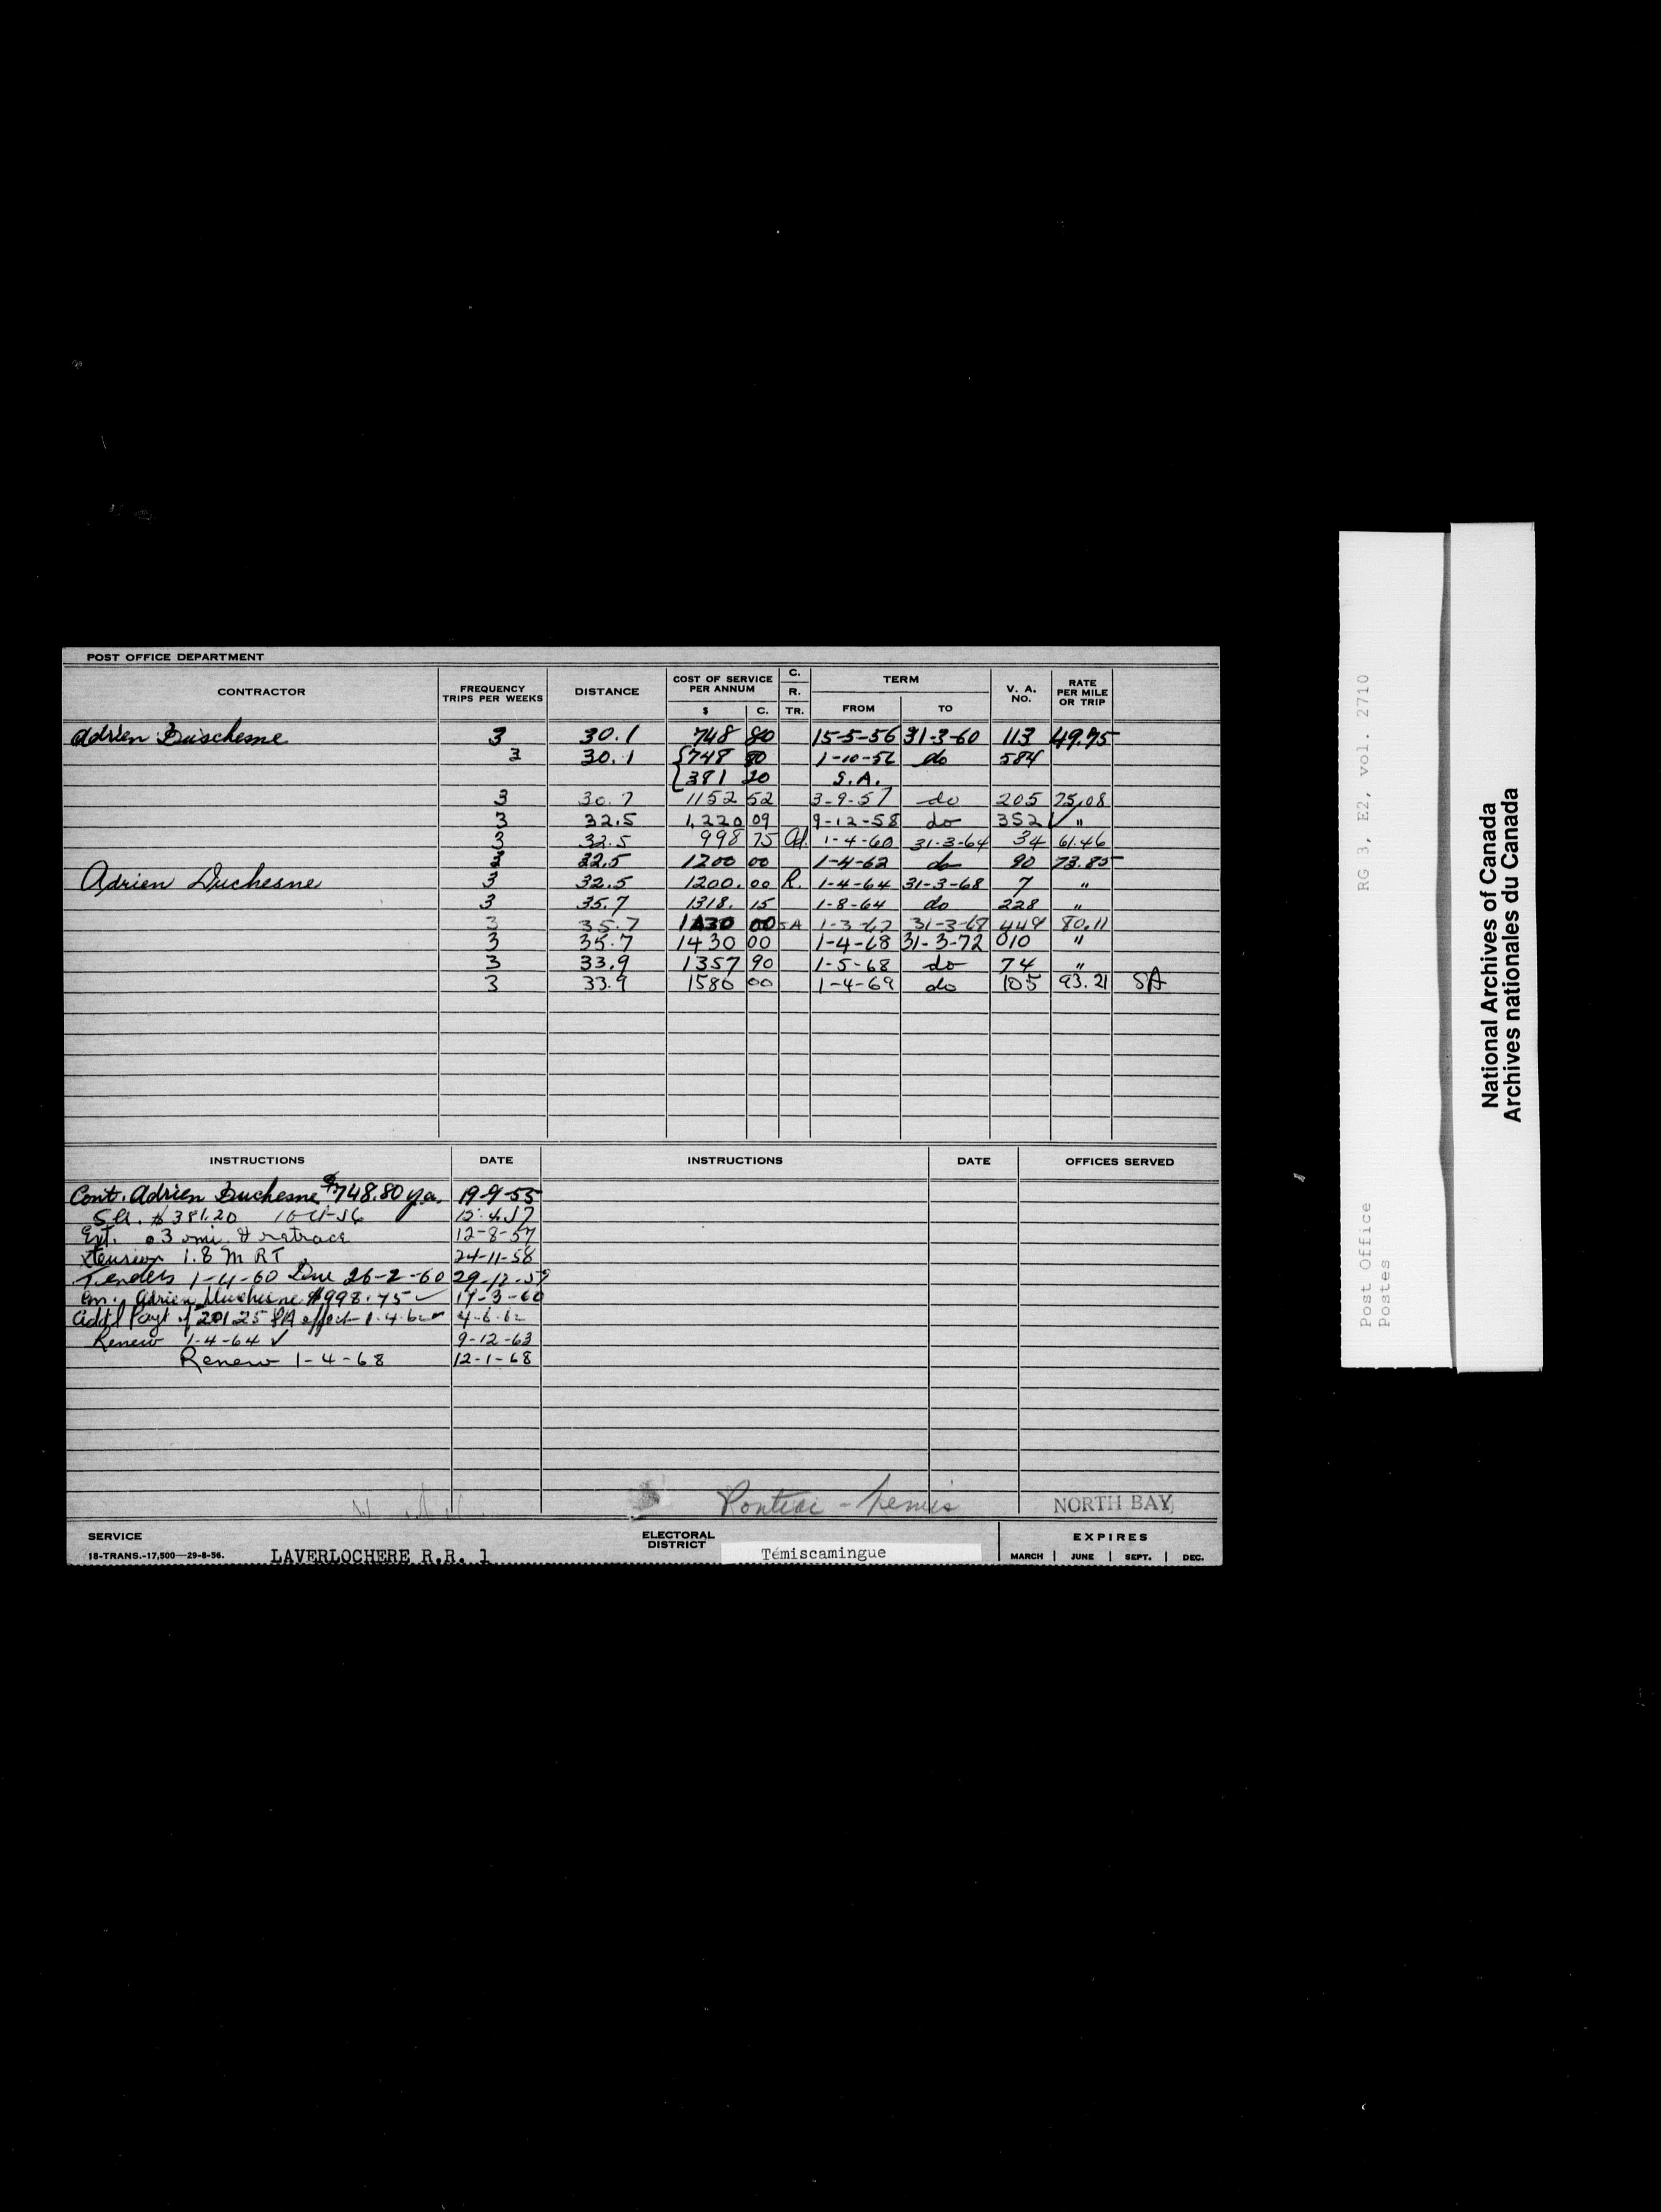 POST OFFICE DEPARTMENT
CONTRACTOR FREQUENCY TRIPS PER WEEKS DISTANCE COST OF SERVICE PER ANNUM $ C. C. R. TR. TERM FROM TO V. A. NO. RATE PER MILE OR TRIP
Adrien Duschesne 3 30.1 748 80 15-5-56 31-3-60 113 49.75
3 30.1 748 80 1-10-56 do 584
381 20 S.A.
3 30.7 1152 52 3-9-57 do 205 75.08
3 32.5 1,220 09 9-12-58 do 352 "
3 32.5 998 75 Ad. 1-4-60 31-3-64 34 61.46
3 32.5 1200 00 1-4-62 do 90 73.85
Adrien Duchesne 3 32.5 1200.00 R. 1-4-64 31-3-68 7 "
3 35.7 1318. 15 1-8-64 do 228 "
3 35.7 1430 00 SA 1-3-67 31-3-68 449 80.11
3 35.7 1430 00 1-4-68 31-3-72 010 "
3 33.9 1357 90 1-5-68 do 74 "
3 33.9 1580 00 1-4-69 do 105 93.21 SA
INSTRUCTIONS DATE INSTRUCTIONS DATE OFFICES SERVED
Cont. Adrien Duchesne $748.80 p.a. 19-9-55
SA. $381.20
Ext. .3 mi & retrace 12-8-57
xtension 1.8 M RT 24-11-58
Tenders 1-4-60 Due 26-2-60 29-12-59
Adrien Duchesne $998.75 ✓ 17-3-60
Add'l Payt of 201.25 SA effect 1.4.62 4-6-62
Renew 1-4-64 ✓ 9-12-63
Renew 1-4-68 12-1-68
Pontiac - Temis NORTH BAY
SERVICE LAVERLOCHERE R.R. 1 ELECTORAL DISTRICT Témiscamingue EXPIRES
18-TRANS.-17,500—29-8-56. MARCH JUNE SEPT. DEC.
RG 3, E2, vol. 2710
Post Office
Postes
National Archives of Canada
Archives nationales du Canada